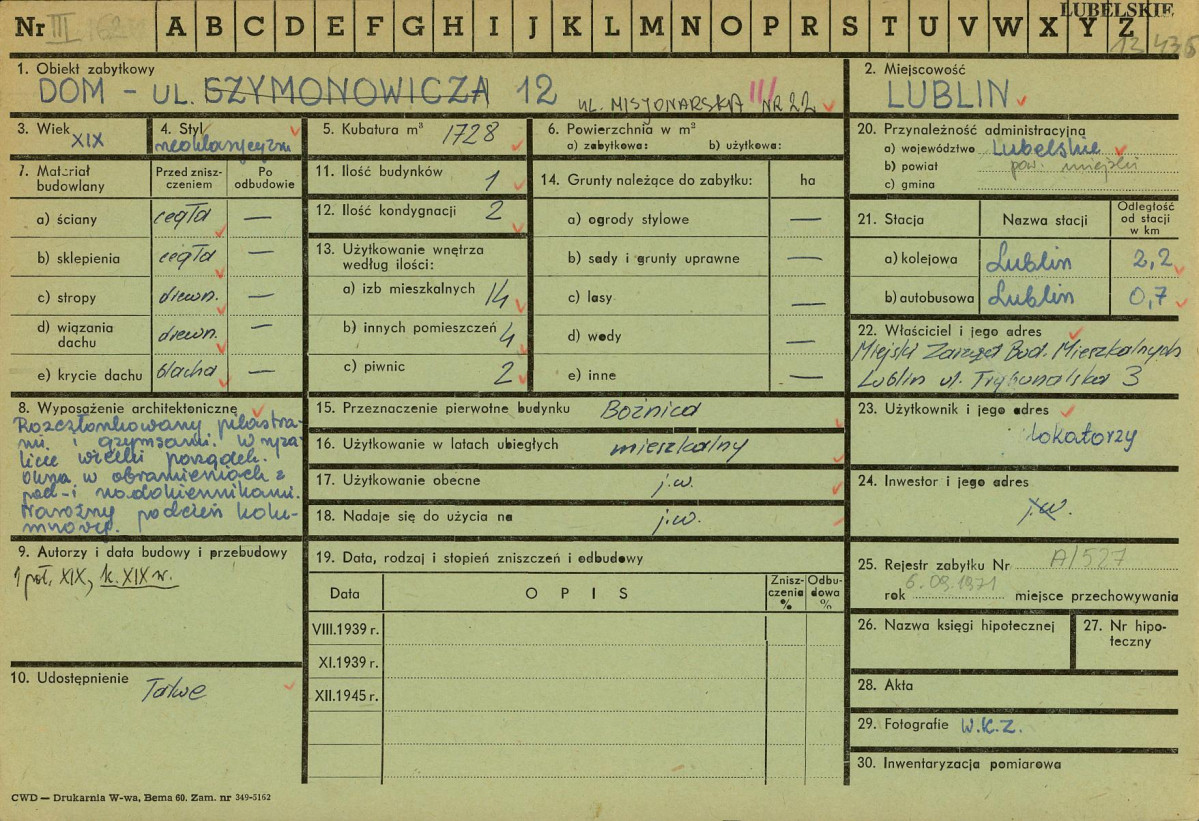 LUBELSKIE
Nr III A B C D E F G H I J K L M N O P R S T U V W X Y Z
1. Obiekt zabytkowy
DOM - UL. SZYMONOWICZA 12 UL. MISJONARSKA NR 22
2. Miejscowość
LUBLIN
3. Wiek
XIX
4. Styl
neoklasycyzm
5. Kubatura m³ 1728
6. Powierzchnia w m²
a) zabytkowa: b) użytkowa:
7. Materiał budowlany
Przed zniszczeniem
Po odbudowie
a) ściany cegła —
b) sklepienia cegła —
c) stropy drewn. —
d) wiązania dachu drewn. —
e) krycie dachu blacha —
8. Wyposażenie architektoniczne
Rozczłonkowany pilastra-
mi i gzymsami. W ryza-
licie wielki porządek.
Okna w obramieniach z
pod-i nadokiennikami.
Narożny podcień kolu-
mnowy.
9. Autorzy i data budowy i przebudowy
1 poł. XIX, k. XIX w.
10. Udostępnienie
Łatwe
11. Ilość budynków 1
12. Ilość kondygnacji 2
13. Użytkowanie wnętrza
według ilości:
a) izb mieszkalnych 14
b) innych pomieszczeń 4
c) piwnic 2
14. Grunty należące do zabytku: ha
a) ogrody stylowe —
b) sady i grunty uprawne —
c) lasy —
d) wody —
e) inne —
15. Przeznaczenie pierwotne budynku Bożnica
16. Użytkowanie w latach ubiegłych mieszkalny
17. Użytkowanie obecne j.w.
18. Nadaje się do użycia na j.w.
19. Data, rodzaj i stopień zniszczeń i odbudowy
Data OPIS Zniszczenia % Odbudowa %
VIII.1939 r.
XI.1939 r.
XII.1945 r.
20. Przynależność administracyjna
a) województwo Lubelskie
b) powiat pow. miejski
c) gmina
21. Stacja Nazwa stacji Odległość od stacji w km
a) kolejowa Lublin 2,2
b) autobusowa Lublin 0,7
22. Właściciel i jego adres
Miejski Zarząd Bud. Mieszkalnych
Lublin ul. Trybunalska 3
23. Użytkownik i jego adres
Lokatorzy
24. Inwestor i jego adres
j.w.
25. Rejestr zabytku Nr A/527
rok 6.09.1971 miejsce przechowywania
26. Nazwa księgi hipotecznej
27. Nr hipo-
teczny
28. Akta
29. Fotografie W.K.Z.
30. Inwentaryzacja pomiarowa
CWD — Drukarnia W-wa, Bema 60. Zam. nr 349-5162